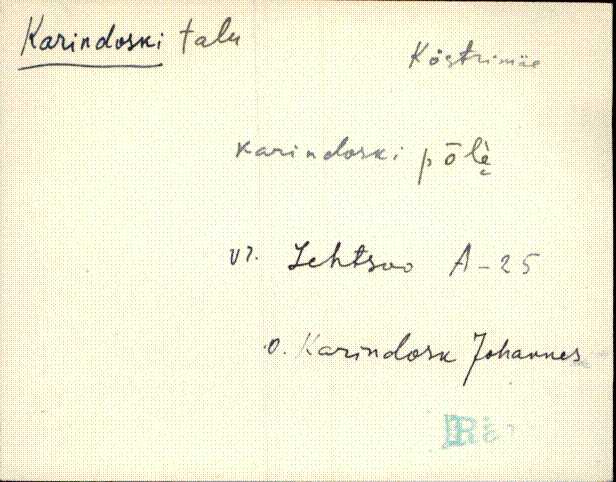 Karindoski talu
Köstrimäe
karindoski pōlè̮
vr. Lehtsoo A-25
o. Karindosk Johannes